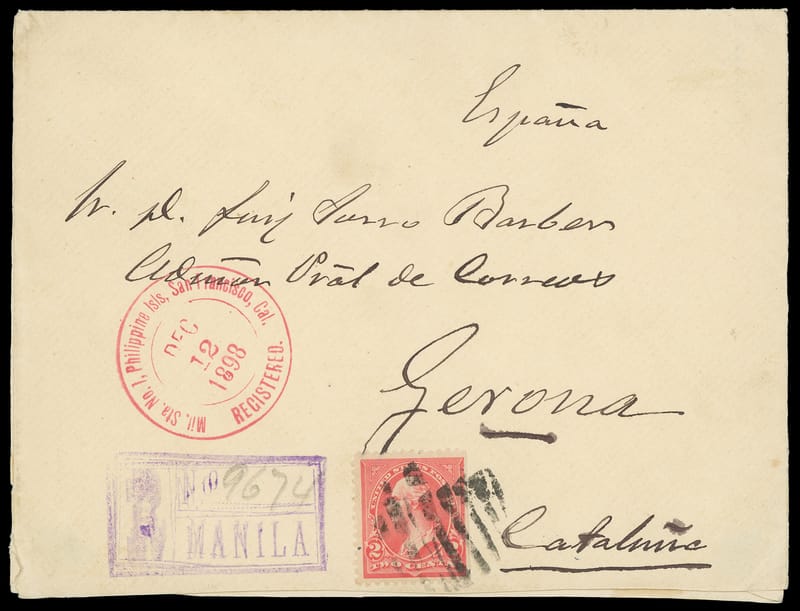 España
Sr. D. Luis Barber
Admõn Pral de Correos
Gerona
Cataluña
Mil. Sta. No. 1, Philippine Isls, San Francisco, Cal.
DEC
12
1898
REGISTERED.
R
No 9674
MANILA
UNITED STATES POSTAGE
2 2
TWO CENTS